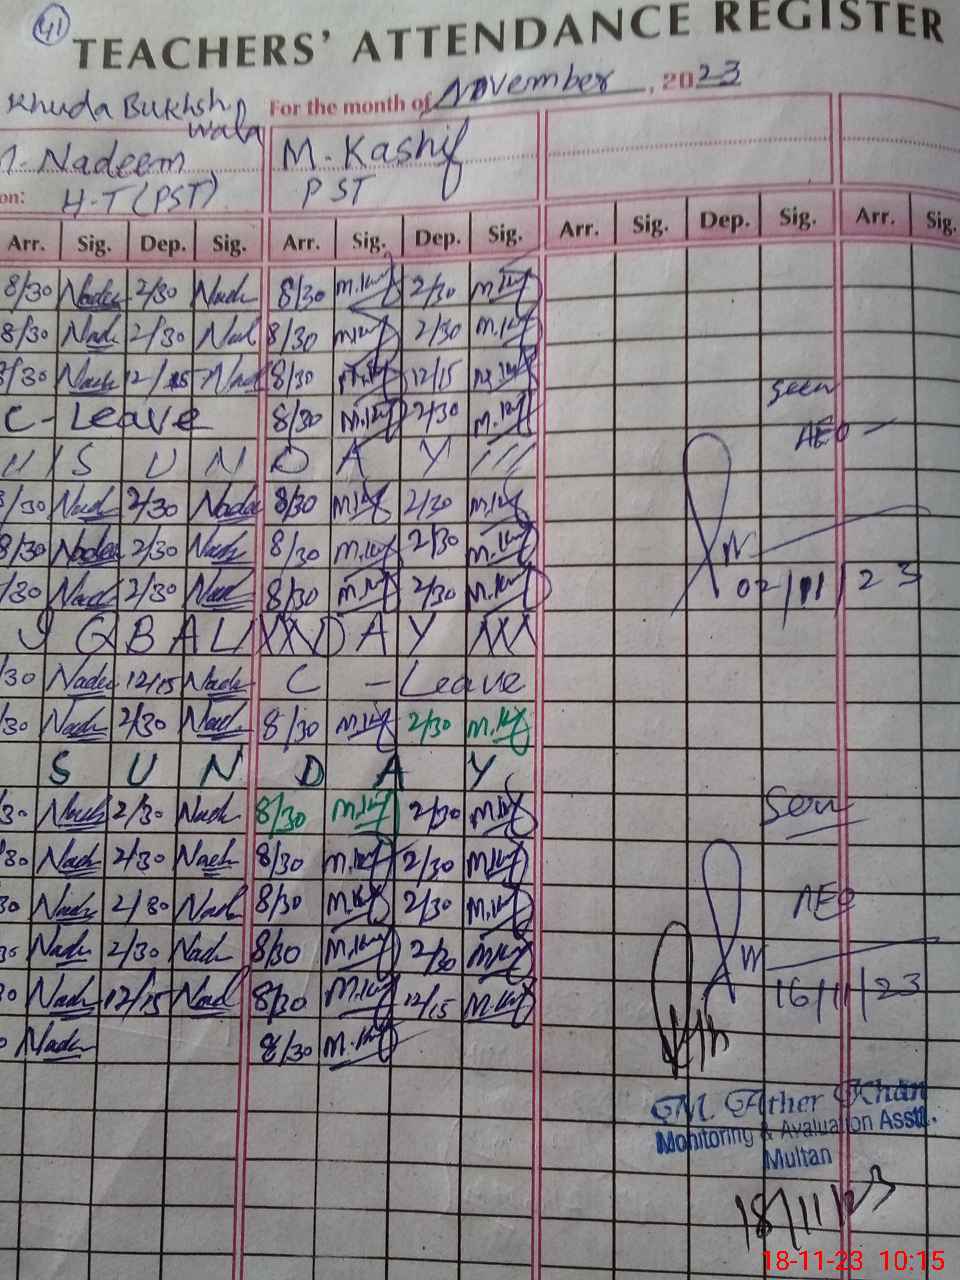 41
TEACHERS' ATTENDANCE REGISTER
Khuda Bukhsh Wala For the month of November, 2023
M. Nadeem M. Kashif
on: H.T (PST) PST
Arr. Sig. Dep. Sig. Arr. Sig. Dep. Sig. Arr. Sig. Dep. Sig. Arr. Sig.
8/30 Nadee 2/30 Nade 8/30 M.Kf 2/30 M.Kf
8/30 Nade 2/30 Nad 8/30 M.Kf 2/30 M.Kf
8/30 Nade 12/15 Nad 8/30 M.Kf 12/15 M.Kf
seen
C - Leave 8/30 M.Kf 2/30 M.Kf
AEO
S U N D A Y
/30 Nade 2/30 Nade 8/30 M.Kf 2/30 M.Kf
8/30 Nadee 2/30 Nade 8/30 M.Kf 2/30 M.Kf
/30 Nade 2/30 Nade 8/30 M.Kf 2/30 M.Kf
02/11/23
I Q B A L D A Y
/30 Nadee 12/15 Nade C - Leave
/30 Nade 2/30 Nade 8/30 M.Kf 2/30 M.Kf
S U N D A Y
30 Nade 2/30 Nade 8/30 M.Kf 2/30 M.Kf
Seen
/30 Nade 2/30 Nade 8/30 M.Kf 2/30 M.Kf
30 Nade 2/30 Nade 8/30 M.Kf 2/30 M.Kf
AEO
30 Nade 2/30 Nade 8/30 M.Kf 2/30 M.Kf
30 Nade 12/15 Nad 8/30 M.Kf 12/15 M.Kf
16/11/23
0 Nade 8/30 M.Kf
M. Ather Khan
Monitoring & Evaluation Asstt.
Multan
18/11/23
18-11-23 10:15